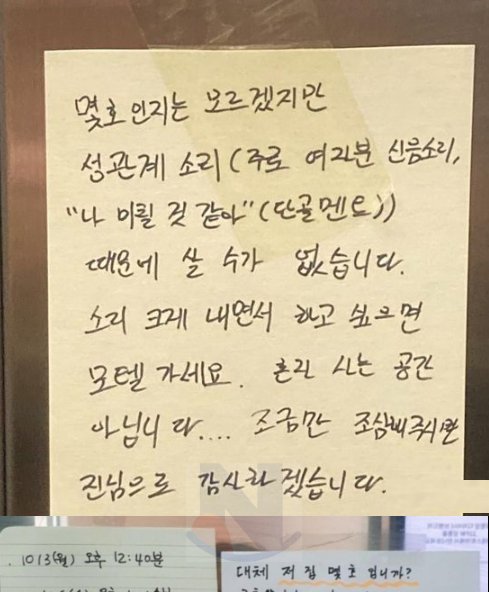 몇호인지는 모르겠지만
성관계 소리(주로 여자분 신음소리,
"나 미칠 것 같아"(단골멘트))
때문에 살 수가 없습니다.
소리 크게 내면서 하고 싶으면
모텔 가세요. 혼자 사는 공간
아닙니다.... 조금만 조심해주시면
진심으로 감사하겠습니다.
10/3(월) 오후 12:40분
대체 저 집 몇호 입니까?